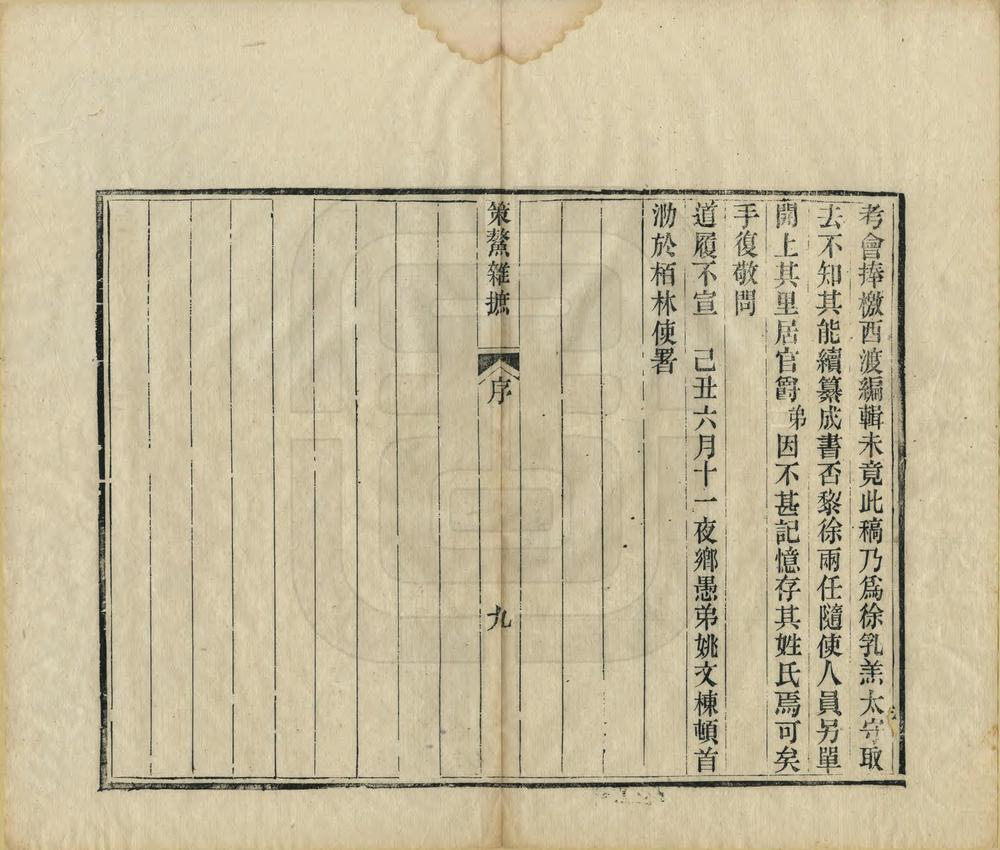 考會捧檄西渡編輯未竟此稿乃爲徐乳羔太守取
去不知其能續纂成書否黎徐兩任隨使人員另單
開上其里居官爵弟因不甚記憶存其姓氏焉可矣
手復敬問
道履不宣　己丑六月十一夜鄉愚弟姚文棟頓首
泐於栢林使署
策鰲雜摭
序
九